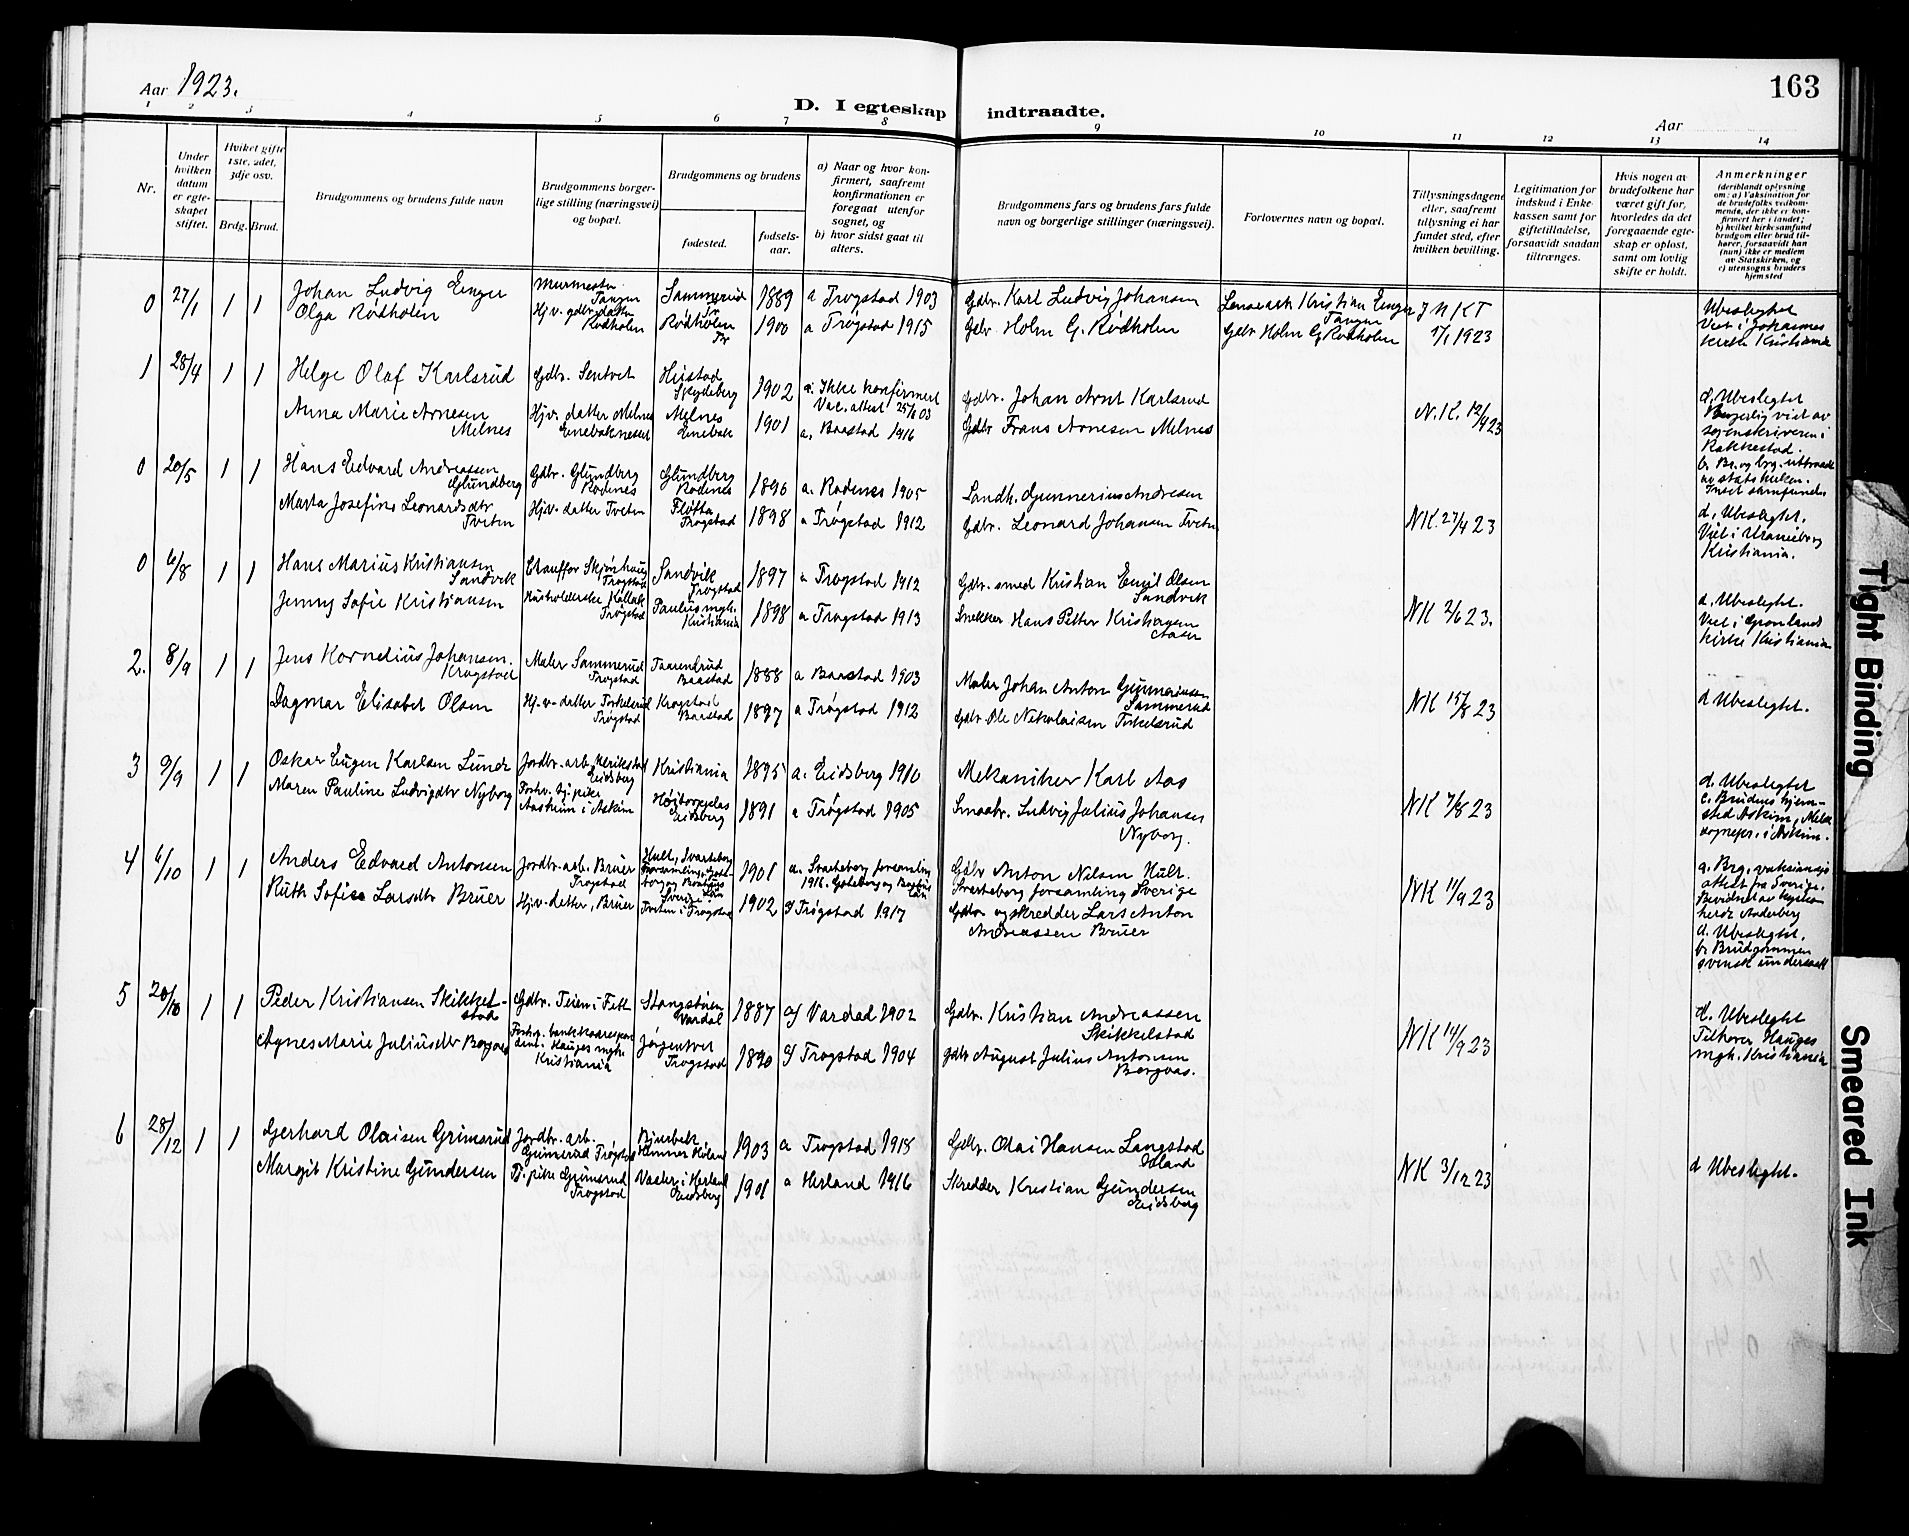 Aar 1923.
163
D. I egteskap indtraadte.
Aar
1 2 3 4 5 6 7 8 9 10 11 12 13 14
Nr.
Under hvilken datum er egteskapet stiftet.
Hvilket gifte 1ste, 2det, 3dje osv.
Brdg. Brud.
Brudgommens og brudens fulde navn
Brudgommens borgerlige stilling (næringsvei) og bopæl.
Brudgommens og brudens
fødested.
fødselsaar.
a) Naar og hvor konfirmert, saafremt konfirmationen er foregaat utenfor sognet, og
b) hvor sidst gaat til alters.
Brudgommens fars og brudens fars fulde navn og borgerlige stillinger (næringsvei).
Forlovernes navn og bopæl.
Tillysningsdagene eller, saafremt tillysning ei har fundet sted, efter hvilken bevilling.
Legitimation for indskud i Enkekassen samt for giftetilladelse, forsaavidt saadan tiltrænges.
Hvis nogen av brudefolkene har været gift før, hvorledes da det foregaaende egteskap er opløst, samt om lovlig skifte er holdt.
Anmerkninger
(deriblandt oplysning om: a) Vaksination for de brudefolks vedkommende, der ikke er konfirmert her i landet; b) hvilket kirkesamfund brudgom eller brud tilhører, forsaavidt han (hun) ikke er medlem av Statskirken, og c) utensogns bruders hjemsted
0 27/1 1 1 Johan Ludvig Enger Murmester Tangen Sammerud Tr 1889 a Trogstad 1903 Gdbr. Karl Ludvig Johansen Kristian Enger Tangen J N K T
Olga Rödholen Hjv. gdbr.datter Rödholen Rödholen Tr 1900 a Trøgstad 1915 Gdbr Holm G. Rödholen Gdbr Holm G. Rödholen 17/1 1923
Ubeslegtet
Viet i Johannes
kirke Kristiania
1 28/4 1 1 Helge Olaf Karlsrud Gdbr. Sentvet Hustad Skydeberg 1902 a. Ikke konfirmert Vac. attest 25/6 03 Gdbr. Johan Arnt Karlsrud
Anna Marie Arnesen Melnes Hjv. datter Melnes Enebaknesset Melnes Enebak 1901 a. Baastad 1916 Gdbr Frans Arnesen Melnes N.K. 12/4 23
d, Ubeslegtet
Borgerlig viet av
sorenskriveren i
Rakkestad.
b. Br. og brg. uttraadt
av statskirken.
0 20/5 1 1 Hans Edvard Andreassen Glundberg Gdbr. Glundberg Rødenes Glundberg Rødenes 1896 a. Rødenes 1905 Landh. Gunnerius Andresen
Marta Josefine Leonardsdtr Tveten Hjv. datter Tveten Fløtta Trøgstad 1898 a Trøgstad 1912 Gdbr. Leonard Johansen Tveten NK. 27/4 23
d, Ubeslegtet.
Viet i Uranieborg
Kristiania.
0 6/8 1 1 Hans Marius Kristiansen Sandvik Chauffør Skjønhaug Trøgstad Sandvik Trøgstad 1897 a Trøgstad 1912 Gdbr. smed Kristian Emil Olsen Sandvik
Jenny Sofie Kristiansen Husholderske Kallak Trøgstad Paulus mgh. Kristiania 1898 a Trøgstad 1913 Snekker Hans Petter Kristiansen Aasen NK 2/6 23.
d, Ubeslegtet.
Viet i Grønland
kirke Kristiania
2. 8/9 1 1 Jens Kornelius Johansen. Krogstad Maler Sammerud Trøgstad Taarendrud Baastad 1888 a Baastad 1903 Maler Johan Anton Gunneriusen Sammerud
Dagmar Elisabet Olsen Hj.v.-datter Torkelsrud Trøgstad Krogstad Baastad 1897 a Trøgstad 1912 Gdbr Ole Nikolaisen Torkelsrud NK 15/8 23
d Ubeslegtet.
3 9/9 1 1 Oskar Eugen Karlsen Lunde Jordbr. arb. Eidsberg Kristiania 1895 a. Eidsberg 1910 Mekaniker Karl Aas
Maren Pauline Ludvigdtr Nyborg Forhv. tj. pike Aaskim i Askim Eidsberg 1891 a Trøgstad 1905 Smaabr. Ludvig Julius Johansen Nyborg. NK 7/8 23
d. Ubeslegtet
c. Brudens hjemsted
Askim, Meldt
sognepr. i Askim.
4 6/10 1 1 Anders Edvard Antonsen Jordbr. arb. Bruer Trøgstad Hult, Svarteborg forsamling, Göteborg og Bohus Län Sverige 1901 a. Svarteborg forsamling 1916. Göteborg og Bohus Län Gdbr Anton Nilsen Hult. Svarteborg forsamling Sverige
Ruth Sofie Larsdtr Bruer Hj.v. datter, Bruer Tveten i Trøgstad 1902 a/ Trøgstad 1917 Gdbr og skredder Lars Anton Andreassen Bruer NK 11/9 23
a. Brg. vaksinasjs
attest fra Sverige.
Bevidnet av kyrkoherde Anderberg
d. Ubeslegtet.
b. Brudgommen
svensk undersaatt
5 20/10 1 1 Peder Kristiansen Skikkelstad Gdbr. Teien i Fett Stangstuen Vardal 1887 a/ Vardal 1902 Gdbr. Kristian Andreassen Skikkelstad
Agnes Marie Juliusdtr Borgaas Forhv. i Hauges mgh. Kristiania Jørgentvet Trøgstad 1890 a/ Trogstad 1904 Gdbr August Julius Antonsen Borgaas. NK 14/9 23
d. Ubeslegtet
Tilhører Hauges
mgh. Kristiania
6 28/12 1 1 Gerhard Olaisen Grimsrud Jordbr. arb. Grimsrud Trøgstad Bjurbæk Hemnes Høland 1903 a Trøgstad 1918 Gdbr. Olai Hansen Langstad
Margit Kristine Gundersen Tj. pike Grimsrud Trøgstad i Herland Eidsberg 1901 a Herland 1916 Skredder Kristian Gundersen Eidsberg NK 3/12 23
d Ubeslegtet.
Tight Binding
Smeared Ink